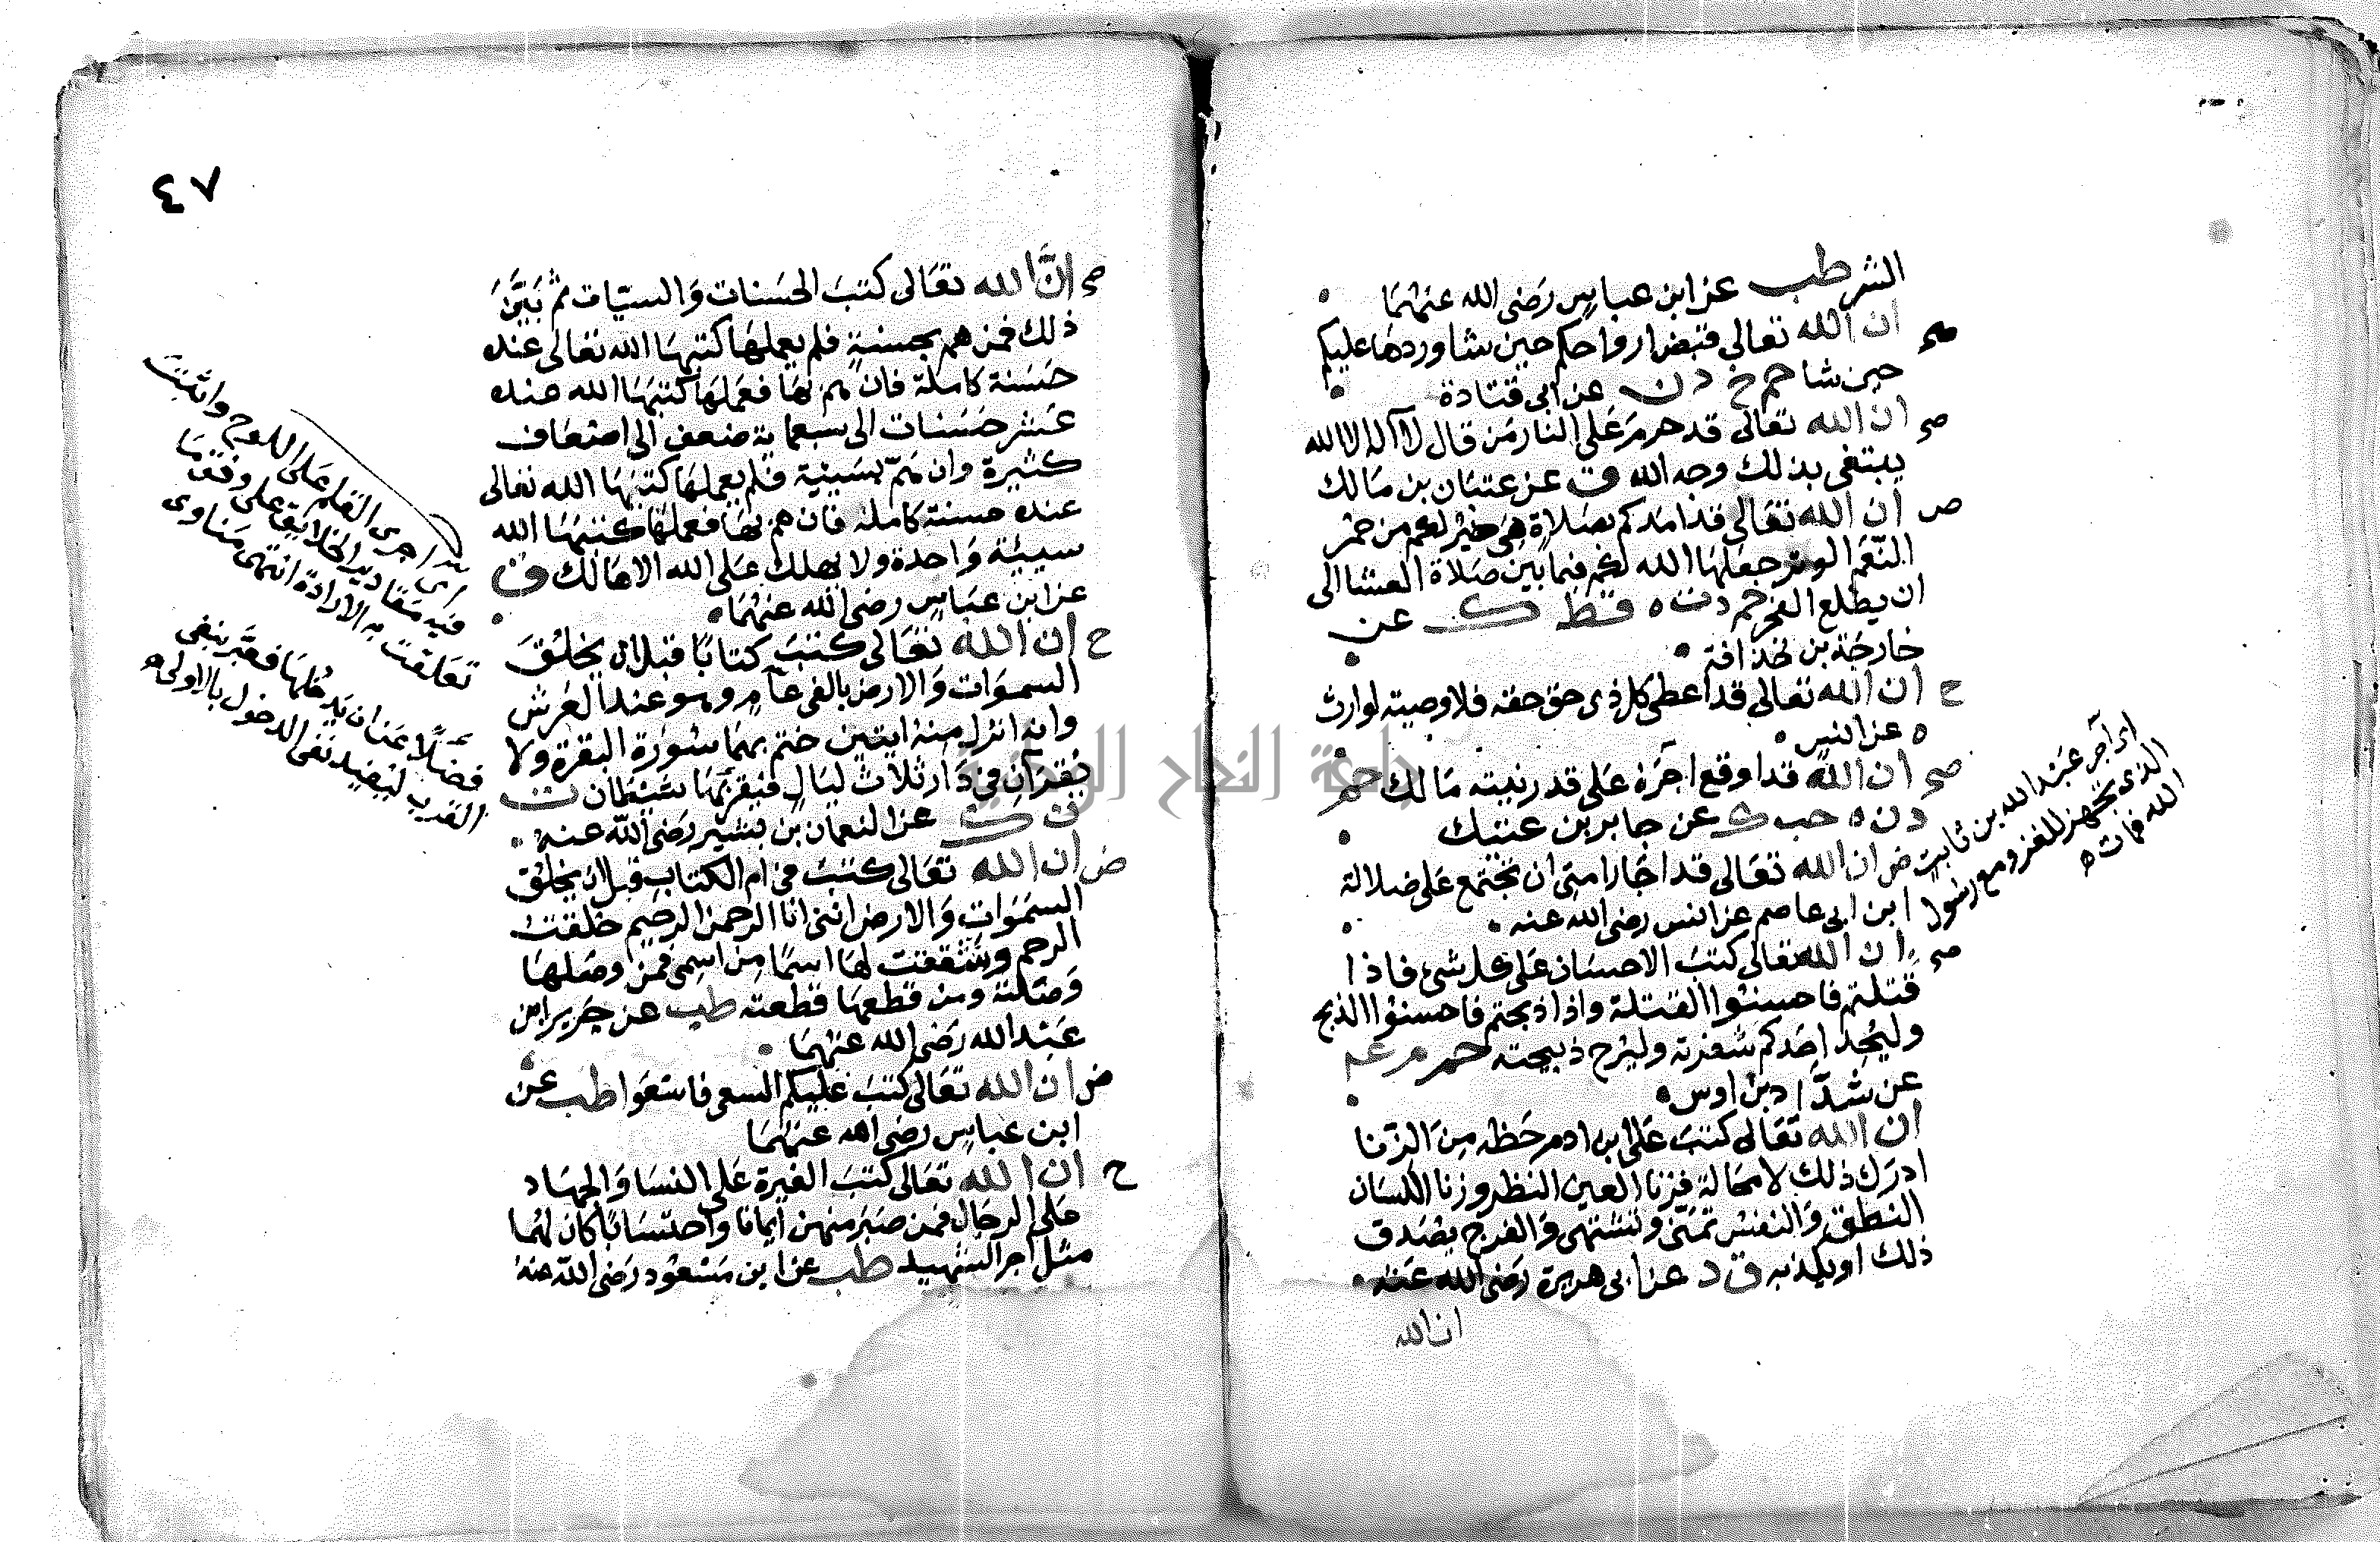 الشر طب عن ابن عباس رضي الله عنهما
صح ان الله تعالى قبض ارواحكم حين شا وردها عليكم
حين شا حم خ د ن عن ابي قتادة
صح ان الله تعالى قد حرم على النار من قال لا اله الا الله
يبتغي بذلك وجه الله ق عن عتبان بن مالك
ص ان الله تعالى قد امدكم بصلاة هي خير لكم من حمر
النعم الوتر جعلها الله لكم فيما بين صلاة العشا الى
ان يطلع الفجر حم د ت ه قط ك عن
خارجة بن حذافة
ح ان الله تعالى قد اعطى كل ذي حق حقه فلا وصيته لوارث
ه عن انس
صح ان الله قد اوقع اجره على قدر نيته مالك حم
د ن ه حب ك عن جابر بن عتيك
ض ان الله تعالى قد اجار امتي ان تجتمع على ضلالة
ابن ابي عاصم عن انس رضي الله عنه
صح ان الله تعالى كتب الاحسان على كل شئ فاذا
قتلتم فاحسنوا القتلة واذا ذبحتم فاحسنوا الذبح
وليحد احدكم شفرته وليرح ذبيحته حم م عم
عن شداد بن اوس
ان الله تعالى كتب على ابن ادم حظه من الزنا
ادرك ذلك لا محالة فزنا العين النظر وزنا اللسان
النطق والنفس تمنى وتشتهي والفرج يصدق
ذلك او يكذبه ق د عن ابي هريرة رضي الله عنه
ان الله
اي آجر عبد الله بن ثابت
الذي تجهز للغزو مع رسول
الله فمات ه
٤٧
صح ان الله تعالى كتب الحسنات والسيات ثم بين
ذلك فمن هم بحسنة فلم يعملها كتبها الله تعالى عنده
حسنة كاملة فان هم بها فعملها كتبها الله عنده
عشر حسنات الى سبعماية ضعف الى اضعاف
كثيرة وان هم بسيئة فلم يعملها كتبها الله تعالى
عنده حسنة كاملة فان هم بها فعملها كتبها الله
سيئة واحدة ولا يهلك على الله الا هالك ق
عن ابن عباس رضي الله عنهما
ح ان الله تعالى كتب كتابا قبل ان يخلق
السموات والارض بالفي عام وهو عند العرش
وانه انزل منه ايتين ختم بهما سورة البقرة ولا
يقرآن في دار ثلاث ليال فيقربها شيطان ت
ن ك عن النعمان بن بشير رضي الله عنه
ض ان الله تعالى كتب في ام الكتاب قبل ان يخلق
السموات والارض انني انا الرحمن الرحيم خلقت
الرحم وشققت لها اسما من اسمي فمن وصلها
وصلته ومن قطعها قطعته طب عن جرير ابن
عبد الله رضي الله عنهما
ض ان الله تعالى كتب عليكم السعي فاسعوا طب عن
ابن عباس رضي الله عنهما
ح ان الله تعالى كتب الغيرة على النسا والجهاد
على الرجال فمن صبر منهن ايمانا واحتسابا كان لها
مثل اجر الشهيد طب عن ابن مسعود رضي الله عنه
اي اجرى القلم على اللوح واثبت
فيه مقادير الخلايق على وفق ما
تعلقت به الارادة انتهى مناوي
فضلا عن ان يدخلها فعبر بنفي
القرب ليفيد نفي الدخول بالاولى ه
جامعة النجاح الوطنية